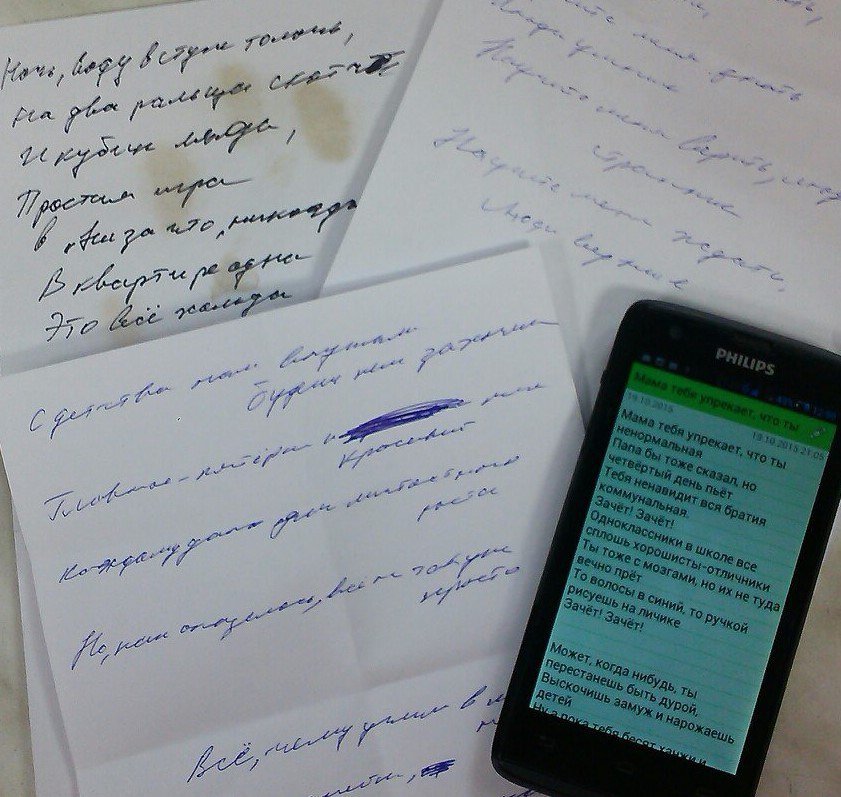 Ночь, воду в ступе толочь,
На два пальца скотч
И кубик льда,
Простая игра
в "Ни за что, никогда
В квартире одна
Это всё холода
меня
Люди
Научите меня верить, люди
странные
Научите меня ждать,
Люди верные
С детства нам внушали
будни
Главное - пятёрки и
красивый
Каждому дано для
роста
Но, как оказалось, всё не так уж
просто
Всё, чему учили в
PHILIPS
Мама тебя упрекает, что ты
19.10.2015
19.10.2015 21:05
Мама тебя упрекает, что ты
ненормальная
Папа бы тоже сказал, но
четвёртый день пьёт
Тебя ненавидит вся братия
коммунальная.
Зачёт! Зачёт!
Одноклассники в школе все
сплошь хорошисты-отличники
Ты тоже с мозгами, но их не туда
вечно прёт
То волосы в синий, то ручкой
рисуешь на личике
Зачёт! Зачёт!
Может, когда нибудь, ты
перестанешь быть дурой,
Выскочишь замуж и нарожаешь
детей
Ну а пока тебя бесят ханжи и